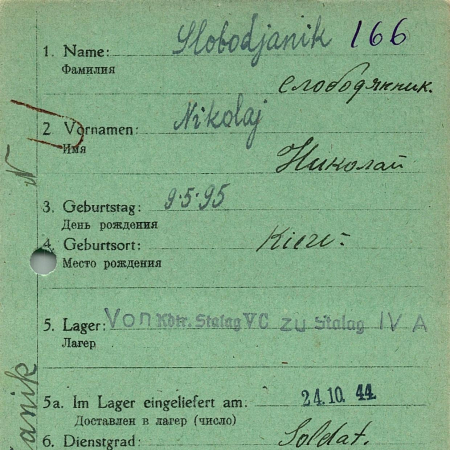 1. Name: Slobodjanik 166
Фамилия слободянник.
2. Vornamen: Nikolaj
Имя Николай
3. Geburtstag: 9.5.95
День рождения
4. Geburtsort: Kiew.
Место рождения
5. Lager: Von Kdr. Stalag V C zu Stalag IV A
Лагер
5a. Im Lager eingeliefert am: 24.10.44
Доставлен в лагер (число)
6. Dienstgrad: Soldat.